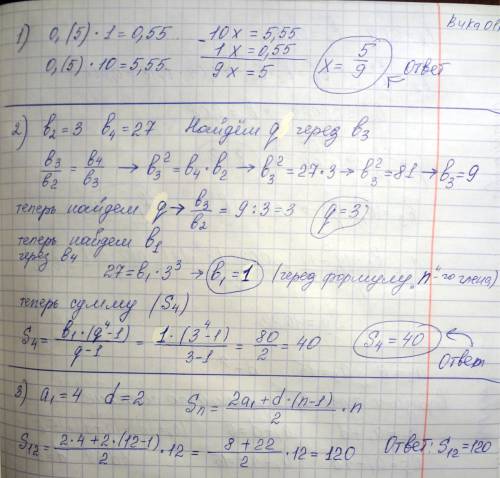 1) 0,(5)·1=0,55 10x=5,55 Вика
0,(5)·10=5,55. 1x=0,55 x=5/9 ответ
9x=5
2) b₂=3 b₄=27 Найдём q через b₃
b₃/b₂=b₄/b₃ → b₃²=b₄·b₂ → b₃²=27·3 → b₃²=81 → b₃=9
теперь найдём q → b₃/b₂ = 9:3=3 q=3
теперь найдём b₁
через b₄
27=b₁·3³ → b₁=1 (через формулу "n"-го члена)
теперь сумму (S₄)
S₄=b₁·(q⁴-1)/q-1 = 1·(3⁴-1)/3-1 = 80/2 = 40 S₄=40
Ответ
3) a₁=4 d=2 Sn=2a₁+d·(n-1)/2·n
S₁₂=2·4+2·(12-1)/2·12=8+22/2·12=120 Ответ: S₁₂=120